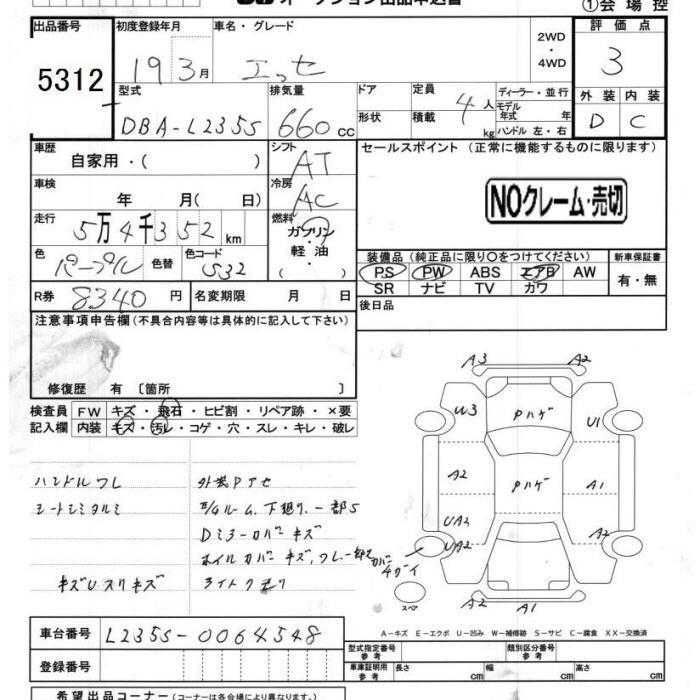 ①会場控
出品番号 5312
初度登録年月 19 3月
車名・グレード エッセ
2WD・4WD
評価点 3
外装 D 内装 C
型式 DBA-L235S
排気量 660 cc
ドア形状
定員 4人
積載 kg
ディーラー・並行
モデル年式 年
ハンドル 左・右
車歴 自家用・( )
シフト AT
車検 年 月( 日)
冷房 AC
走行 5万4千352 km
燃料 ガソリン・軽油・( )
色 パープル 色替
色コード S32
R券 8340 円
名変期限 月 日
セールスポイント(正常に機能するものに限ります)
NOクレーム・売切
装備品(純正品に限り○をつけてください)
PS PW ABS エアB AW
SR ナビ TV カワ
新車保証書 有・無
後日品
注意事項申告欄(不具合内容等は具体的に記入して下さい)
修復歴 有 〔箇所 〕
検査員記入欄
FW キズ・飛石・ヒビ割・リペア跡・×要
内装 キズ・汚レ・コゲ・穴・スレ・キレ・破レ
ハンドルワレ
シートシミタルミ
キズUスリキズ
外装Pアセ
E/Gルーム、下廻り、一部S
Dミラーカバーキズ
ホイルカバーキズ、ワレ、
ライトクモリ
A3 A2
W3 Pハゲ U1
A2 Pハゲ A1
UA2
UA2 A2
スペア
A2 A1
A-キズ E-エクボ U-凹み W-補修跡 S-サビ C-腐食 XX-交換済
車台番号 L235S-0064548
登録番号
型式指定番号 参考
類別区分番号 参考
車庫証明用 参考 長さ cm 幅 cm 高さ cm
希望出品コーナー(コーナーは各会場により異なります。)